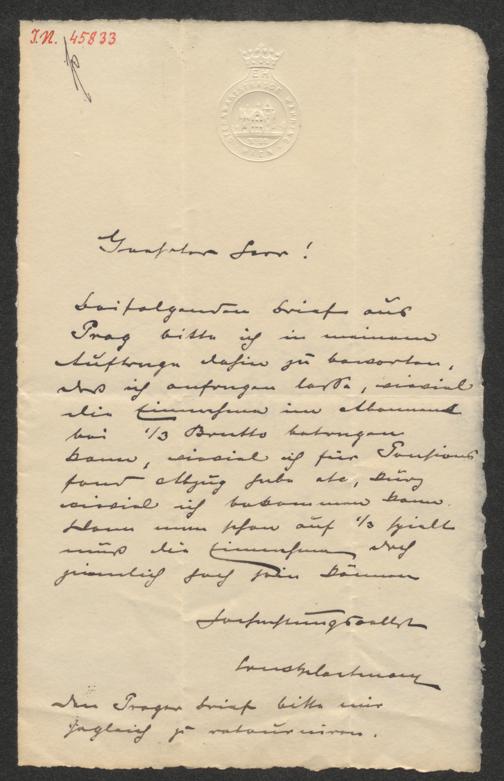 I.N. 45833
Geehrter Herr!
Beifolgenden Brief aus
Prag bitte ich in meinem
Auftrage dahin zu beworten,
daß ich anfragen lasse, wieviel
die Einnahme im Abonnement
bei 1/3 Brutto betragen
kann, wieviel ich für Pensions
fond Abzug habe etc, kurz
wieviel ich bekommen kann.
Wenn man schon auf 1/3 spielt
muß die Einnahme doch
ziemlich hoch sein können
Hochachtungsvollst
den Prager Brief bitte mir
sogleich zu retourniren.